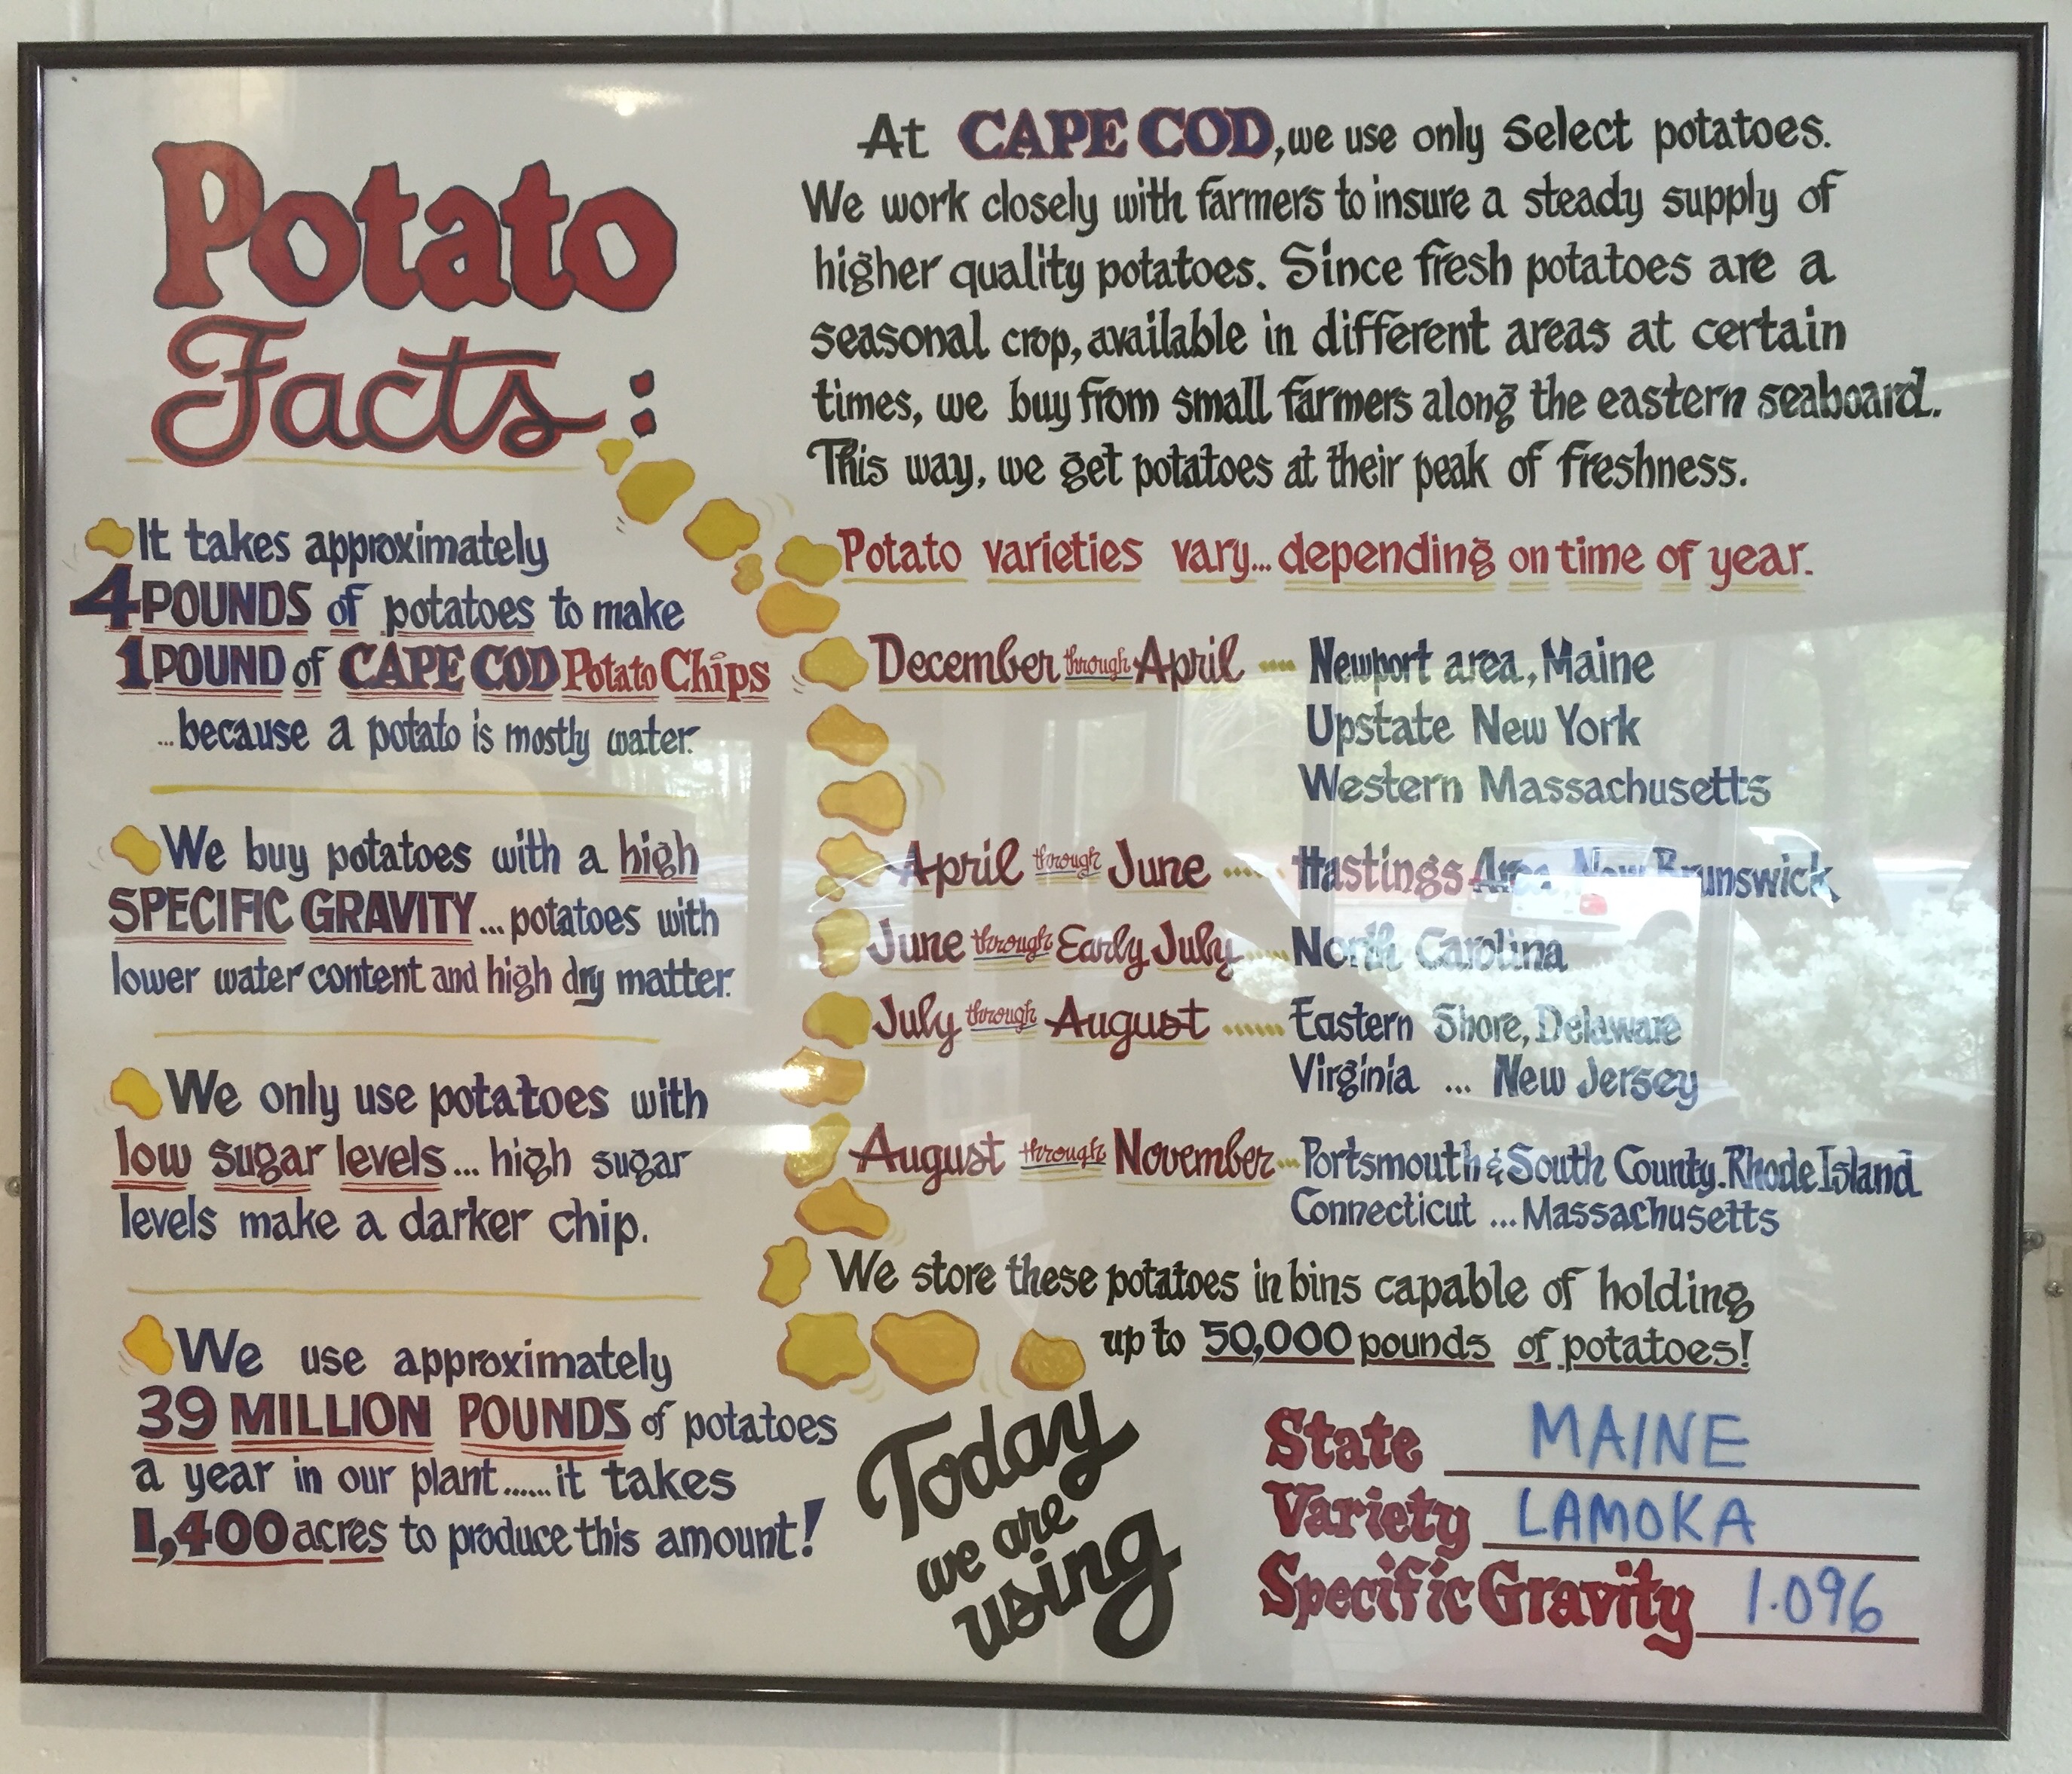 Potato
Facts:
It takes approximately
4 POUNDS of potatoes to make
1 POUND of CAPE COD Potato Chips
...because a potato is mostly water.
We buy potatoes with a high
SPECIFIC GRAVITY... potatoes with
lower water content and high dry matter.
We only use potatoes with
low sugar levels... high sugar
levels make a darker chip.
We use approximately
39 MILLION POUNDS of potatoes
a year in our plant......it takes
1,400 acres to produce this amount!
At CAPE COD, we use only Select potatoes.
We work closely with farmers to insure a steady supply of
higher quality potatoes. Since fresh potatoes are a
seasonal crop, available in different areas at certain
times, we buy from small farmers along the eastern seaboard.
This way, we get potatoes at their peak of freshness.
Potato varieties vary... depending on time of year.
December through April .... Newport area, Maine
Upstate New York
Western Massachusetts
April through June ..... Hastings Area, New Brunswick
June through Early July ..... North Carolina
July through August ...... Eastern Shore, Delaware
Virginia ... New Jersey
August through November ... Portsmouth & South County. Rhode Island
Connecticut ... Massachusetts
We store these potatoes in bins capable of holding
up to 50,000 pounds of potatoes!
Today
we are
using
State MAINE
Variety LAMOKA
Specific Gravity 1.096